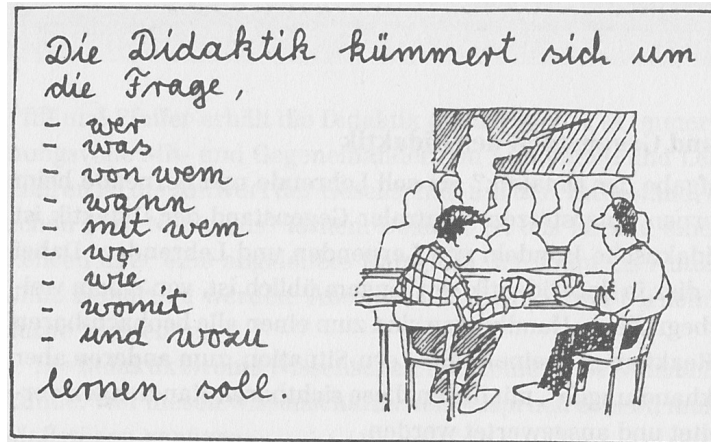 Die Didaktik kümmert sich um
die Frage,
- wer
- was
- von wem
- wann
- mit wem
- wo
- wie
- womit
- und wozu
lernen soll